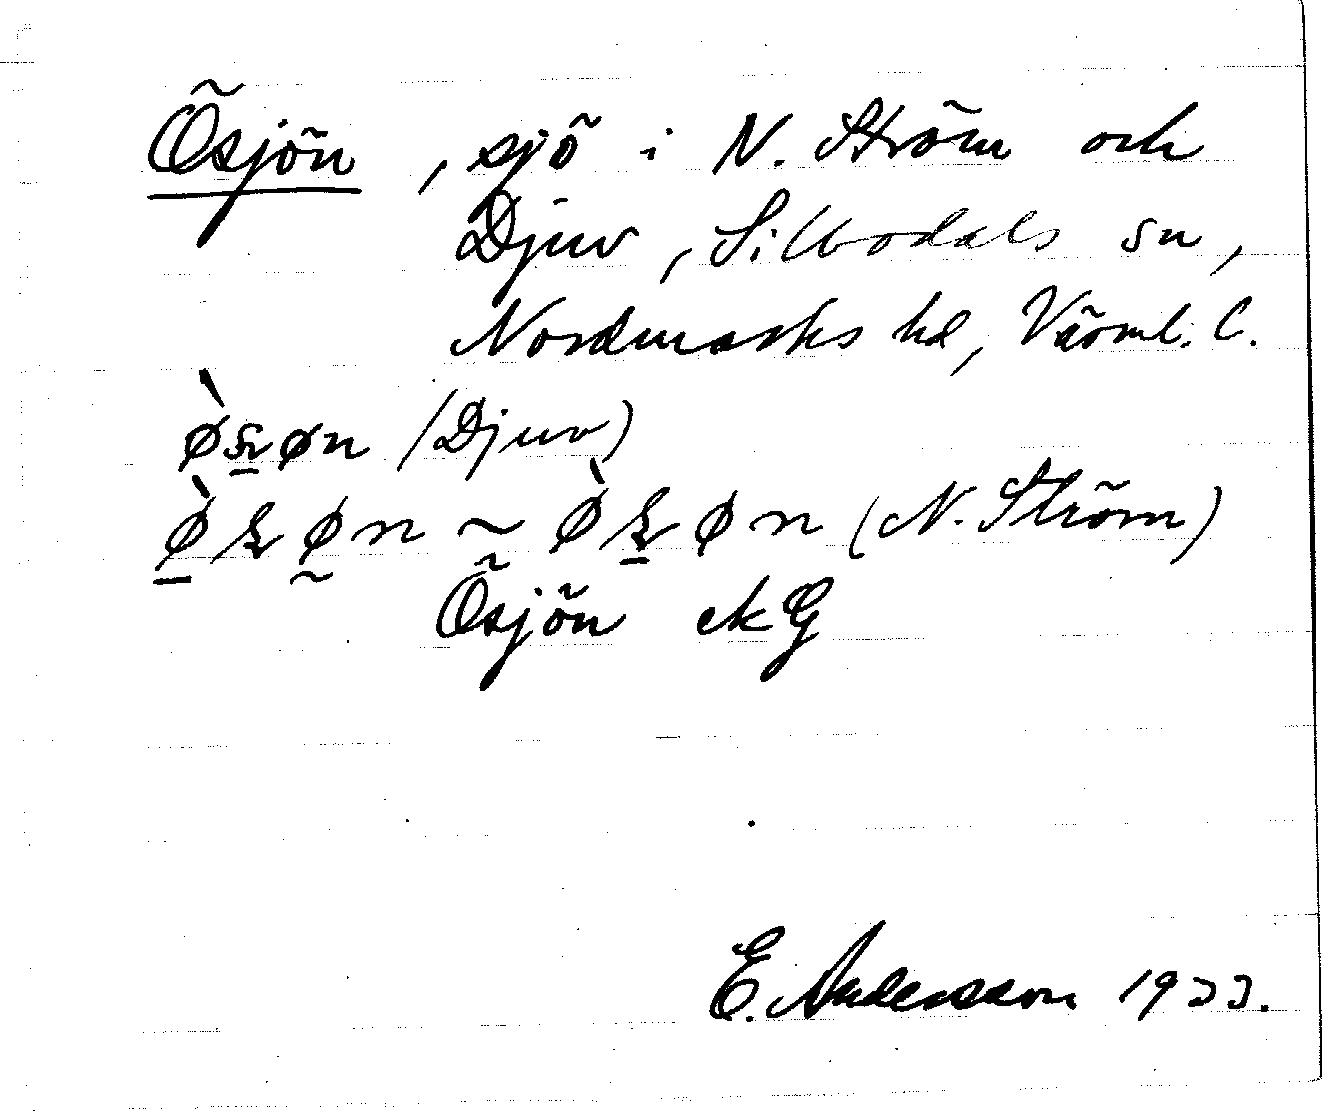 Ösjön, sjö i N. Ström och
Djuv, Silbodals sn,
Nordmarks hd, Värml. l.
ø̀s̠øn (Djuv)
ø̠̀ʂø̰n ~ ø̀ʂ̠øn (N. Ström)
Ösjön ekG
E. Andersson 1933.